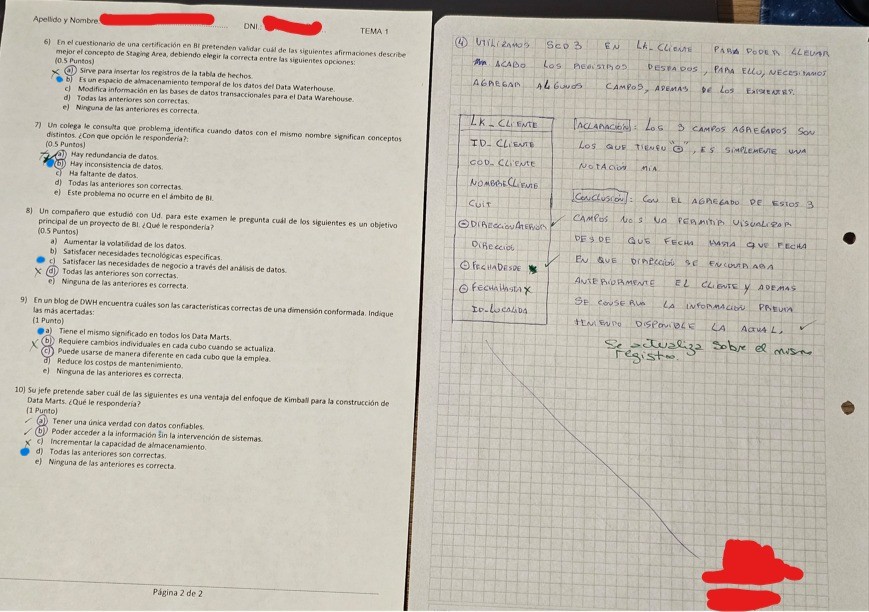 Apellido y Nombre
DNI.
TEMA 1
6) En el cuestionario de una certificación en BI pretenden validar cuál de las siguientes afirmaciones describe
mejor el concepto de Staging Area, debiendo elegir la correcta entre las siguientes opciones:
(0.5 Puntos)
a) Sirve para insertar los registros de la tabla de hechos.
b) Es un espacio de almacenamiento temporal de los datos del Data Waterhouse.
c) Modifica información en las bases de datos transaccionales para el Data Warehouse.
d) Todas las anteriores son correctas.
e) Ninguna de las anteriores es correcta.
7) Un colega le consulta que problema identifica cuando datos con el mismo nombre significan conceptos
distintos. ¿Con que opción le respondería?:
(0.5 Puntos)
a) Hay redundancia de datos.
b) Hay inconsistencia de datos.
c) Ha faltante de datos.
d) Todas las anteriores son correctas.
e) Este problema no ocurre en el ámbito de BI.
8) Un compañero que estudió con Ud. para este examen le pregunta cuál de los siguientes es un objetivo
principal de un proyecto de BI. ¿Qué le respondería?
(0.5 Puntos)
a) Aumentar la volatilidad de los datos.
b) Satisfacer necesidades tecnológicas específicas.
c) Satisfacer las necesidades de negocio a través del análisis de datos.
d) Todas las anteriores son correctas.
e) Ninguna de las anteriores es correcta.
9) En un blog de DWH encuentra cuáles son las características correctas de una dimensión conformada. Indique
las más acertadas:
(1 Punto)
a) Tiene el mismo significado en todos los Data Marts.
b) Requiere cambios individuales en cada cubo cuando se actualiza.
c) Puede usarse de manera diferente en cada cubo que la emplea.
d) Reduce los costos de mantenimiento.
e) Ninguna de las anteriores es correcta.
10) Su jefe pretende saber cuál de las siguientes es una ventaja del enfoque de Kimball para la construcción de
Data Marts. ¿Qué le respondería?
(1 Punto)
a) Tener una única verdad con datos confiables.
b) Poder acceder a la información sin la intervención de sistemas.
c) Incrementar la capacidad de almacenamiento.
d) Todas las anteriores son correctas.
e) Ninguna de las anteriores es correcta.
Página 2 de 2
④ UTILIZAMOS SCD 3 EN LA_CLIENTE PARA PODER LLEVAR
ACABO LOS REGISTROS DESEADOS, PARA ELLO, NECESITAMOS
AGREGAR ALGUNOS CAMPOS, ADEMAS DE LOS EXISTENTES.
LK_CLIENTE
ID_CLIENTE
COD_CLIENTE
NOMBRECLIENTE
CUIT
⊖ DIRECCIONANTERIOR
DIRECCION
⊖ FECHADESDE
⊖ FECHAHASTA
ID_LOCALIDAD
ACLARACIÓN: LOS 3 CAMPOS AGREGADOS SON
LOS QUE TIENEN "⊖", ES SIMPLEMENTE UNA
NOTACIÓN MIA
CONCLUSIÓN: CON EL AGREGADO DE ESTOS 3
CAMPOS NOS VA PERMITIR VISUALIZAR
DESDE QUE FECHA HASTA QUE FECHA
EN QUE DIRECCIÓN SE ENCONTRABA
ANTERIORMENTE EL CLIENTE Y ADEMAS
SE CONSERVA LA INFORMACIÓN PREVIA
TENIENDO DISPONIBLE LA ACTUAL.
Se actualiza sobre el mismo
registro.